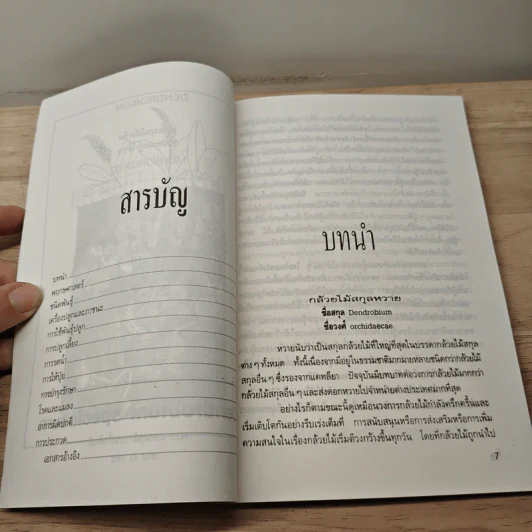 สารบัญ
บทนำ
พฤกษศาสตร์
ชนิดพันธุ์
เครื่องปลูกและภาชนะ
การใช้พันธุ์ปลูก
การปลูกเลี้ยง
การรดน้ำ
การให้ปุ๋ย
การบำรุงรักษา
โรคและแมลง
อาการผิดปกติ
การประกวด
เอกสารอ้างอิง
บทนำ
กล้วยไม้สกุลหวาย
ชื่อสกุล Dendrobium
ชื่อวงศ์ orchidaecae
หวายนับว่าเป็นสกุลกล้วยไม้ที่ใหญ่ที่สุดในบรรดากล้วยไม้สกุล
ต่าง ๆ ทั้งหมด ทั้งนี้เนื่องจากมีอยู่ในธรรมชาติมากมายหลายชนิดกว่ากล้วยไม้
สกุลอื่น ๆ ซึ่งรองจากแคทลียา ปัจจุบันมีบทบาทต่อวงการกล้วยไม้มากกว่า
กล้วยไม้สกุลอื่น ๆ และส่งดอกหวายไปจำหน่ายต่างประเทศมากที่สุด
อย่างไรก็ตามขณะนี้ดูเหมือนวงการกล้วยไม้กำลังครึกครื้นและ
เริ่มเติบโตกันอย่างรีบเร่งเต็มที่ การสนับสนุนหรือการส่งเสริมหรือการเพิ่ม
ความสนใจในเรื่องกล้วยไม้เริ่มตีวงกว้างขึ้นทุกวัน โดยที่กล้วยไม้ถูกนำไป
7